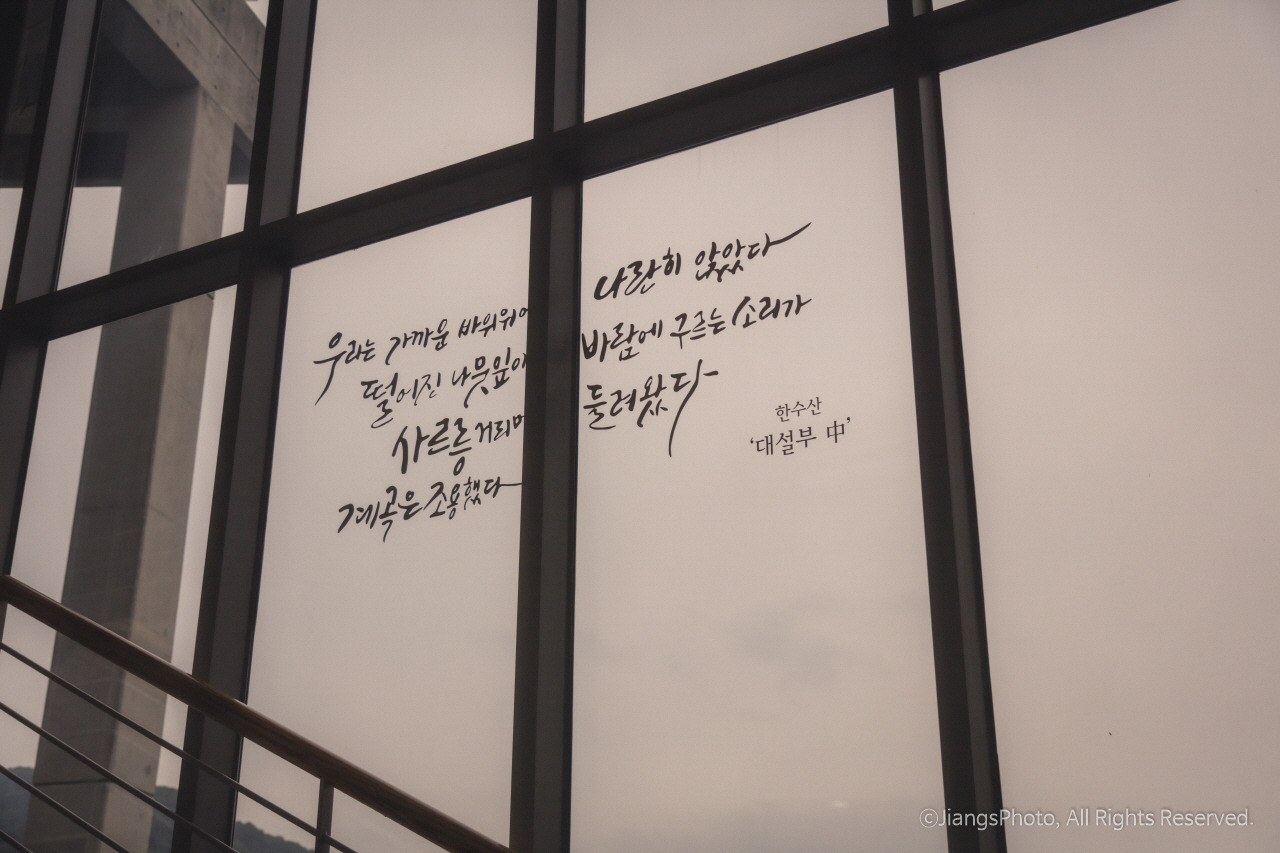 우리는 가까운 바위위에 나란히 앉았다
떨어진 나뭇잎이 바람에 구르는 소리가
사르릉 거리며 들려왔다
계곡은 조용했다
한수산
‘대설부 中’
©JiangsPhoto, All Rights Reserved.